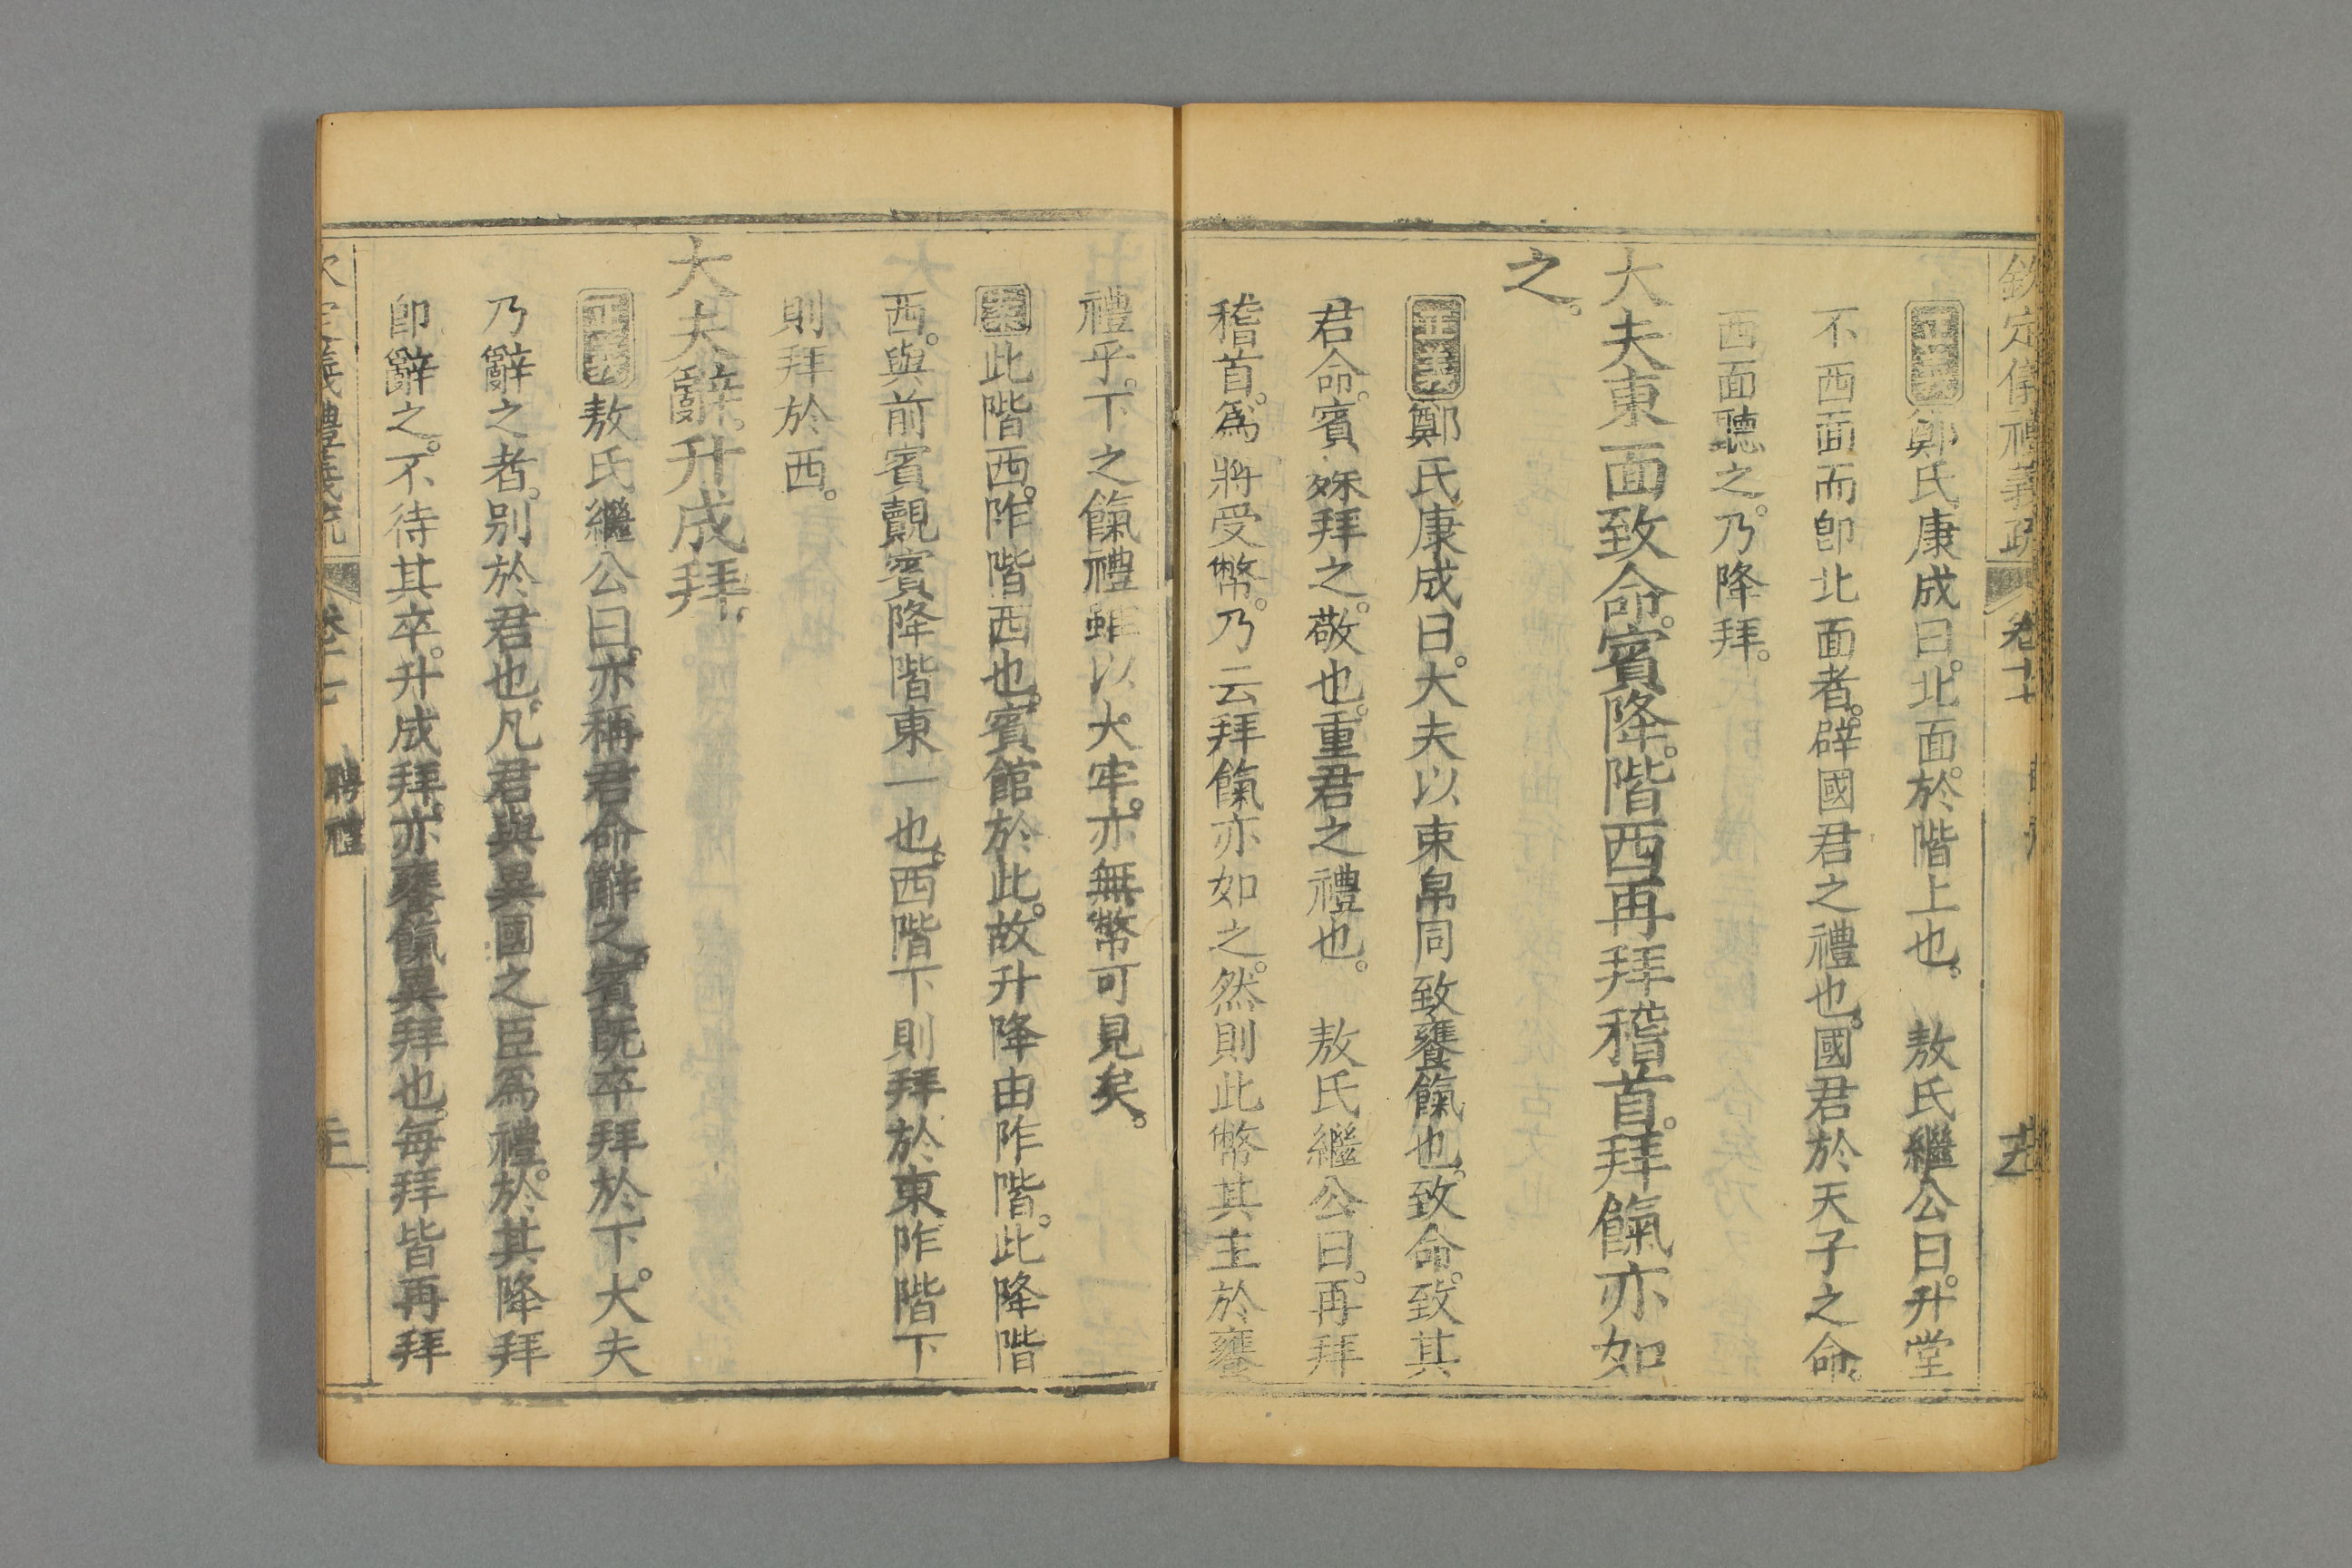 欽定儀禮義疏 卷十七
正義鄭氏康成曰。北面於階上也。 敖氏繼公曰。升堂
不西面而卽北面者。辟國君之禮也。國君於天子之命。
西面聽之。乃降拜。
大夫東面致命。賓降。階西再拜稽首。拜餼亦如
之。
正義鄭氏康成曰。大夫以束帛同致饔餼也。致命。致其
君命。賓殊拜之。敬也。重君之禮也。 敖氏繼公曰。再拜
稽首。爲將受幣。乃云拜餼亦如之。然則此幣其主於饔
禮乎。下之餼禮雖以大牢。亦無幣可見矣。
案此階西。阼階西也。賓館於此。故升降由阼階。此降階
西。與前賓覿賓降階東一也。西階下則拜於東。阼階下
則拜於西。
大夫辭。升成拜。
正義敖氏繼公曰。亦稱君命辭之。賓既卒拜於下。大夫
乃辭之者。别於君也。凡君與異國之臣爲禮。於其降拜
卽辭之。不待其卒。升成拜。亦饔餼異拜也。每拜皆再拜
欽定儀禮義疏 卷十七 聘禮